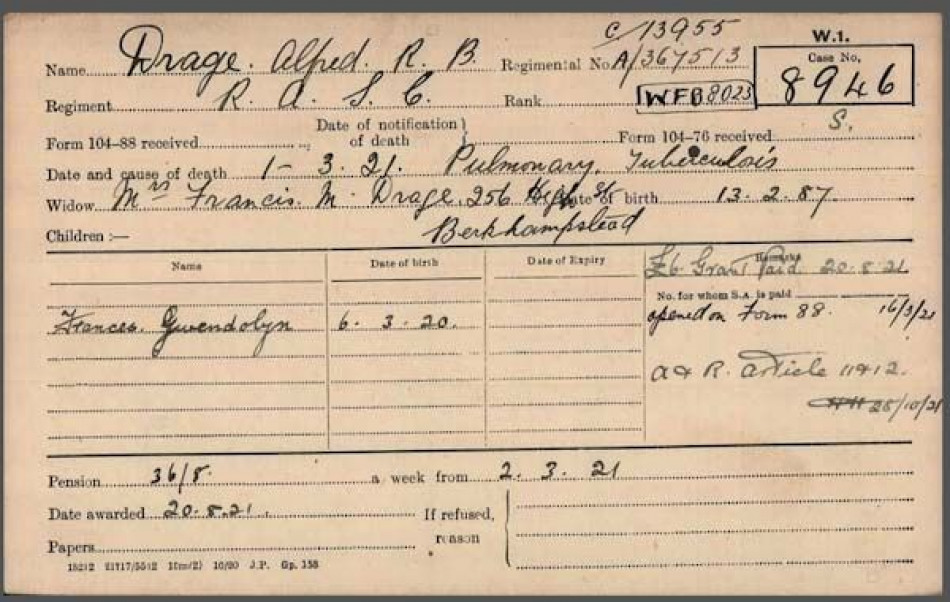 C/13955 W.1.
Name Drage. Alfred. R. B. Regimental No. A/367513 Case No. 8946
Regiment R. A. S. C. Rank WFB 8023
S.
Form 104-88 received Date of notification of death Form 104-76 received
Date and cause of death 1- 3. 21. Pulmonary. Tuberculois
Widow Mrs Francis. M. Drage. 256 High St Date of birth 13. 2. 87.
Children :— Berkhampstead
Name Date of birth Date of Expiry Remarks
£6 Grant Paid. 20.8.21
No. for whom S.A. is paid
Frances. Gwendolyn 6. 3. 20. opened on Form 88. 16/3/21
A & R. Article 11&12.
28/10/21
Pension 36/8 a week from 2. 3. 21
Date awarded 20.8.21. If refused, reason
Papers
10/20 J.P. Gp. 158